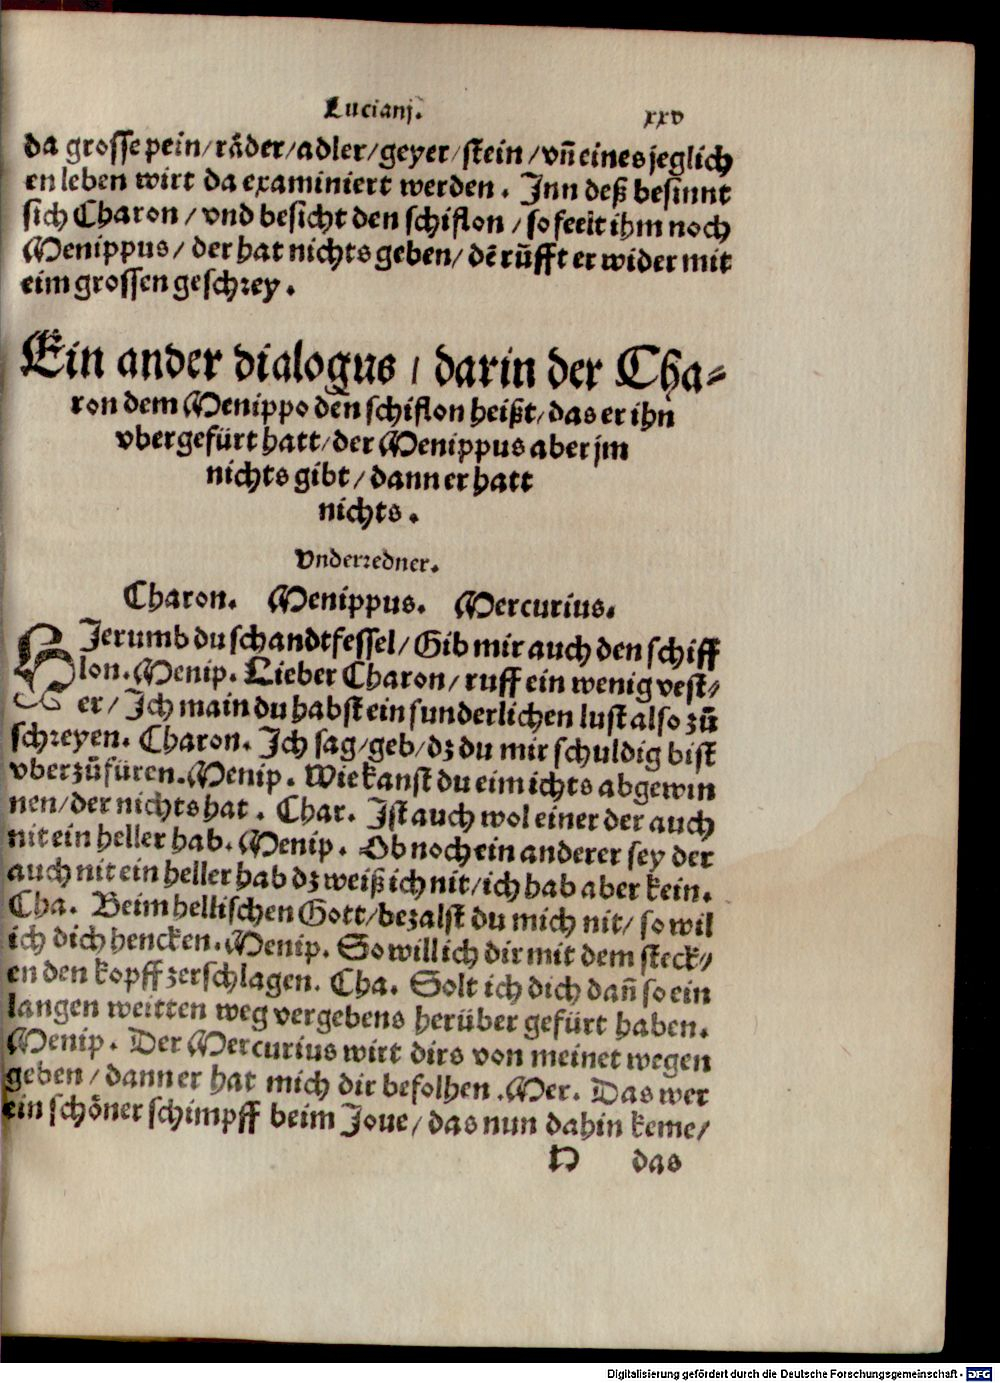 Lucianj. xxv
da grosse pein/räder/adler/geyer/stein/vñ eines jeglich
en leben wirt da examiniert werden. Inn deß besinnt
sich Charon/vnd besicht den schiflon/so feelt ihm noch
Menippus/der hat nichts geben/dē rüfft er wider mit
eim grossen geschrey.
Ein ander dialogus/darin der Cha-
ron dem Menippo den schiflon heißt/das er ihn
vbergefürt hatt/der Menippus aber jm
nichts gibt/dann er hatt
nichts.
Vnderredner.
Charon. Menippus. Mercurius.
HJerumb du schandtfessel/Gib mir auch den schiff
lon. Menip. Lieber Charon/ruff ein wenig vest/
er/Ich main du habst ein sunderlichen lust also zů
schreyen. Charon. Ich sag/geb/dz du mir schuldig bist
vberzůfüren. Menip. Wie kanst du eim ichts abgewin
nen/der nichts hat. Char. Ist auch wol einer der auch
nit ein heller hab. Menip. Ob noch ein anderer sey der
auch nit ein heller hab dz weiß ich nit/ich hab aber kein.
Cha. Beim hellischen Gott/bezalst du mich nit/so wil
ich dich hencken. Menip. So will ich dir mit dem steck/
en den kopff zerschlagen. Cha. Solt ich dich dañ so ein
langen weitten weg vergebens herüber gefürt haben.
Menip. Der Mercurius wirt dirs von meinet wegen
geben/dann er hat mich dir befolhen. Mer. Das wer
ein schöner schimpff beim Joue/das nun dahin keme/
das
Digitalisierung gefördert durch die Deutsche Forschungsgemeinschaft - DFG